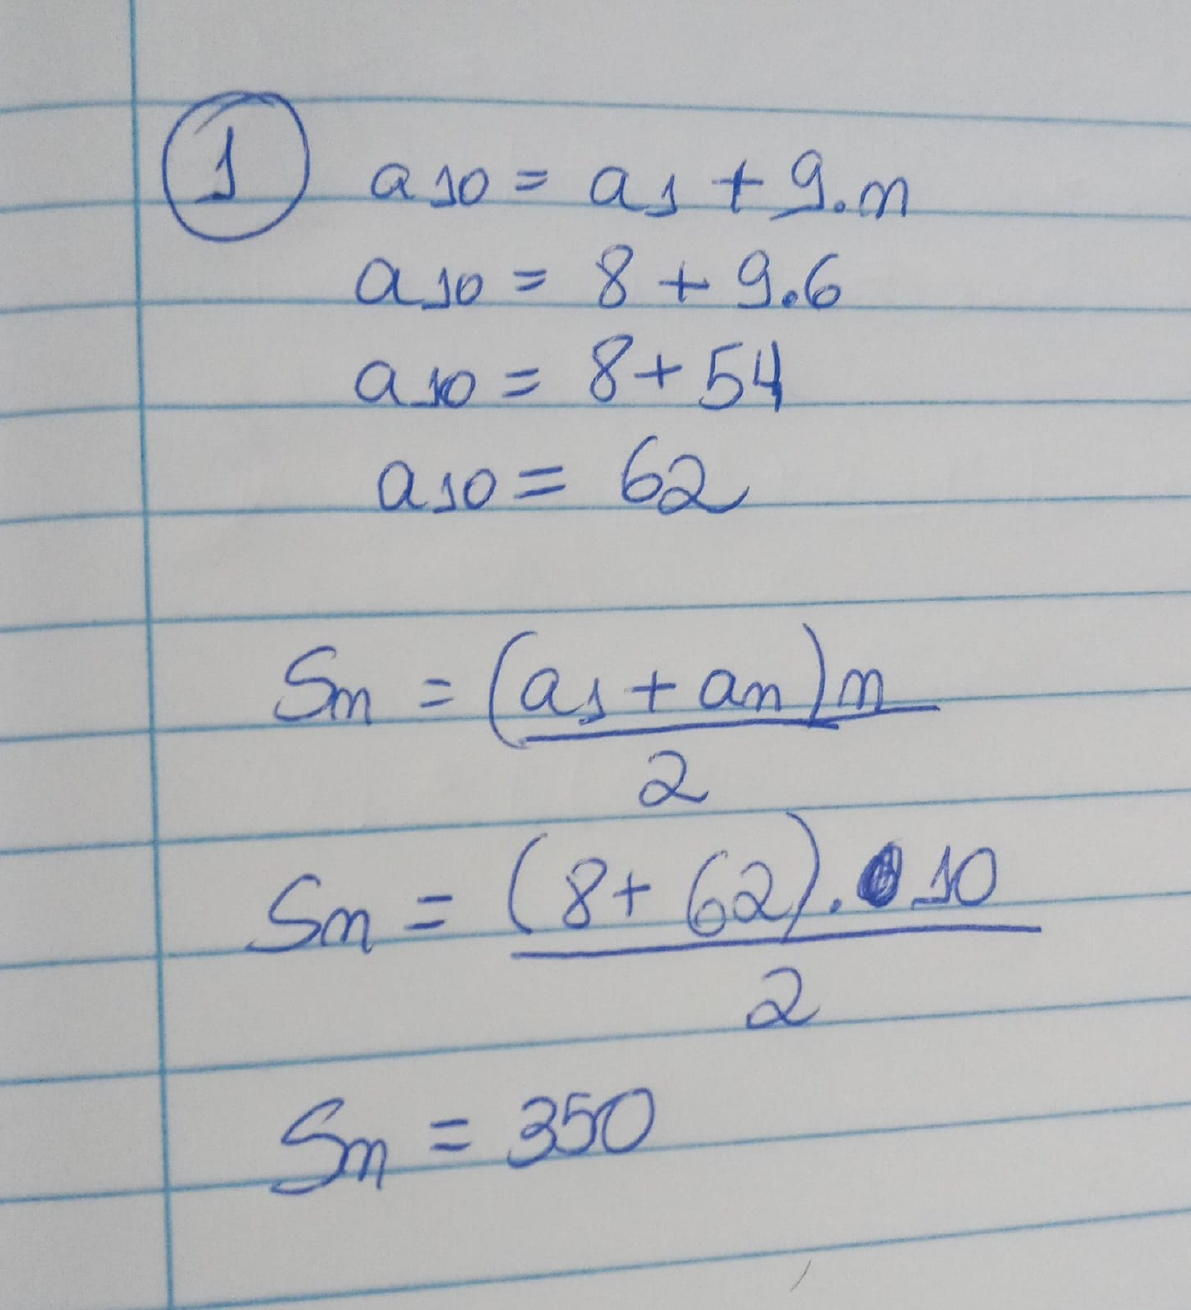 1 a10 = a1 + 9.n
a10 = 8 + 9.6
a10 = 8 + 54
a10 = 62
Sn = (a1 + an)n
2
Sn = (8 + 62).10
2
Sn = 350